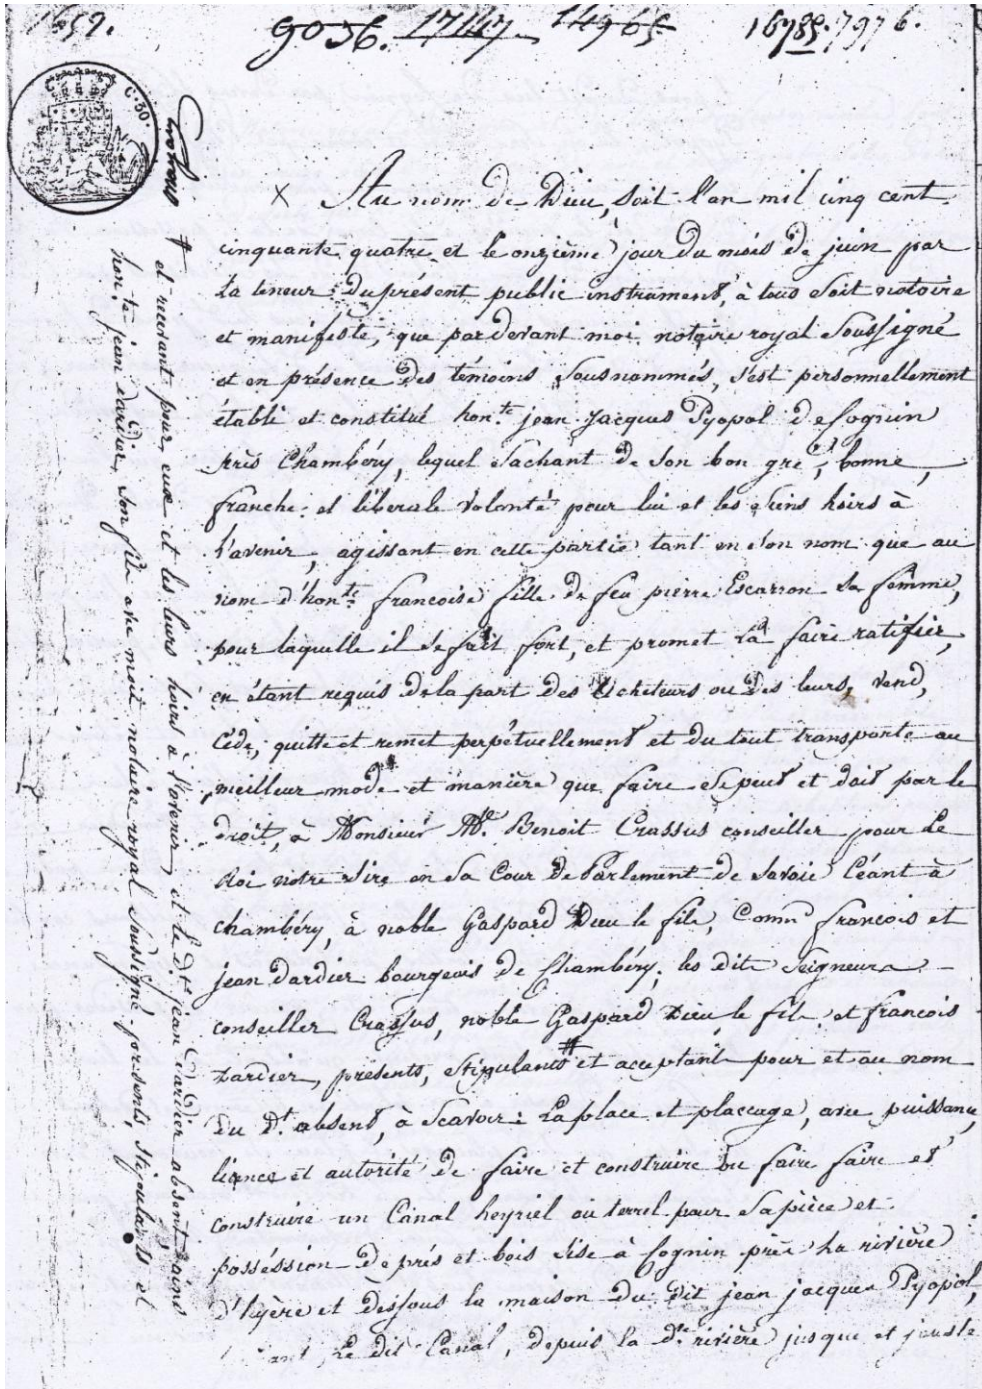 1652.
9056. 17447. 14965. 16785. 7976.
C. 50.
X Au nom de Dieu, soit l'an mil cinq cent
cinquante quatre et le onzième jour du mois de juin par
La teneur du présent public instrument, à tous soit notoire
et manifeste, que pardevant moi notaire royal Soussigné
et en présence Des témoins Sousnommés, s'est personnellement
établi et constitué hon.te jean Jacques Pyopol de Cognin
près Chambéry, lequel Sachant de Son bon gré, bonne,
franche et libérale Volonté pour lui et les Siens hoirs à
l'avenir, agissant en cette partie tant en Son nom que au
nom d'hon.te francoise fille de feu pierre Escarron Sa femme,
pour laquelle il Se fait fort, et promet La faire ratifier,
en étant requis de la part des Acheteurs ou Des leurs, Vend,
Cède, quitte et remet perpétuellement et du tout transporte au
meilleur mode et manière que faire Se peut et doit par le
Droit, à Monsieur Me. Benoit Crassus conseiller pour Le
Roi notre Sire en Sa Cour de Parlement de Savoie Céant à
chambéry, à noble Gaspard Dieu le fils, Comm francois et
jean dardier bourgeois de Chambéry, les dits Seigneurs
conseiller Crassus, noble Gaspard Dieu le fils et francois
Dardier, présents, Stipulants # et acceptant pour et au nom
Du Dt. absent, à Scavoir : La place et placcage, avec puissance,
licence et autorité de faire et construire ou faire faire et
construire un Canal heyriel ou terrel pour Sa pièce et
posséssion de prés et bois Sise à Cognin près La rivière
d'hyère et dessous la maison Du dit jean jacques Pyopol,
Le dit Canal, depuis la dte rivière jusque et jouste
# et recevant pour eux et les leurs hoirs à l'avenir, et le Dt. jean Dardier absent ains
hon.te jean dardier, Son fils avec moi notaire royal Soussigné présents, Stipulants et